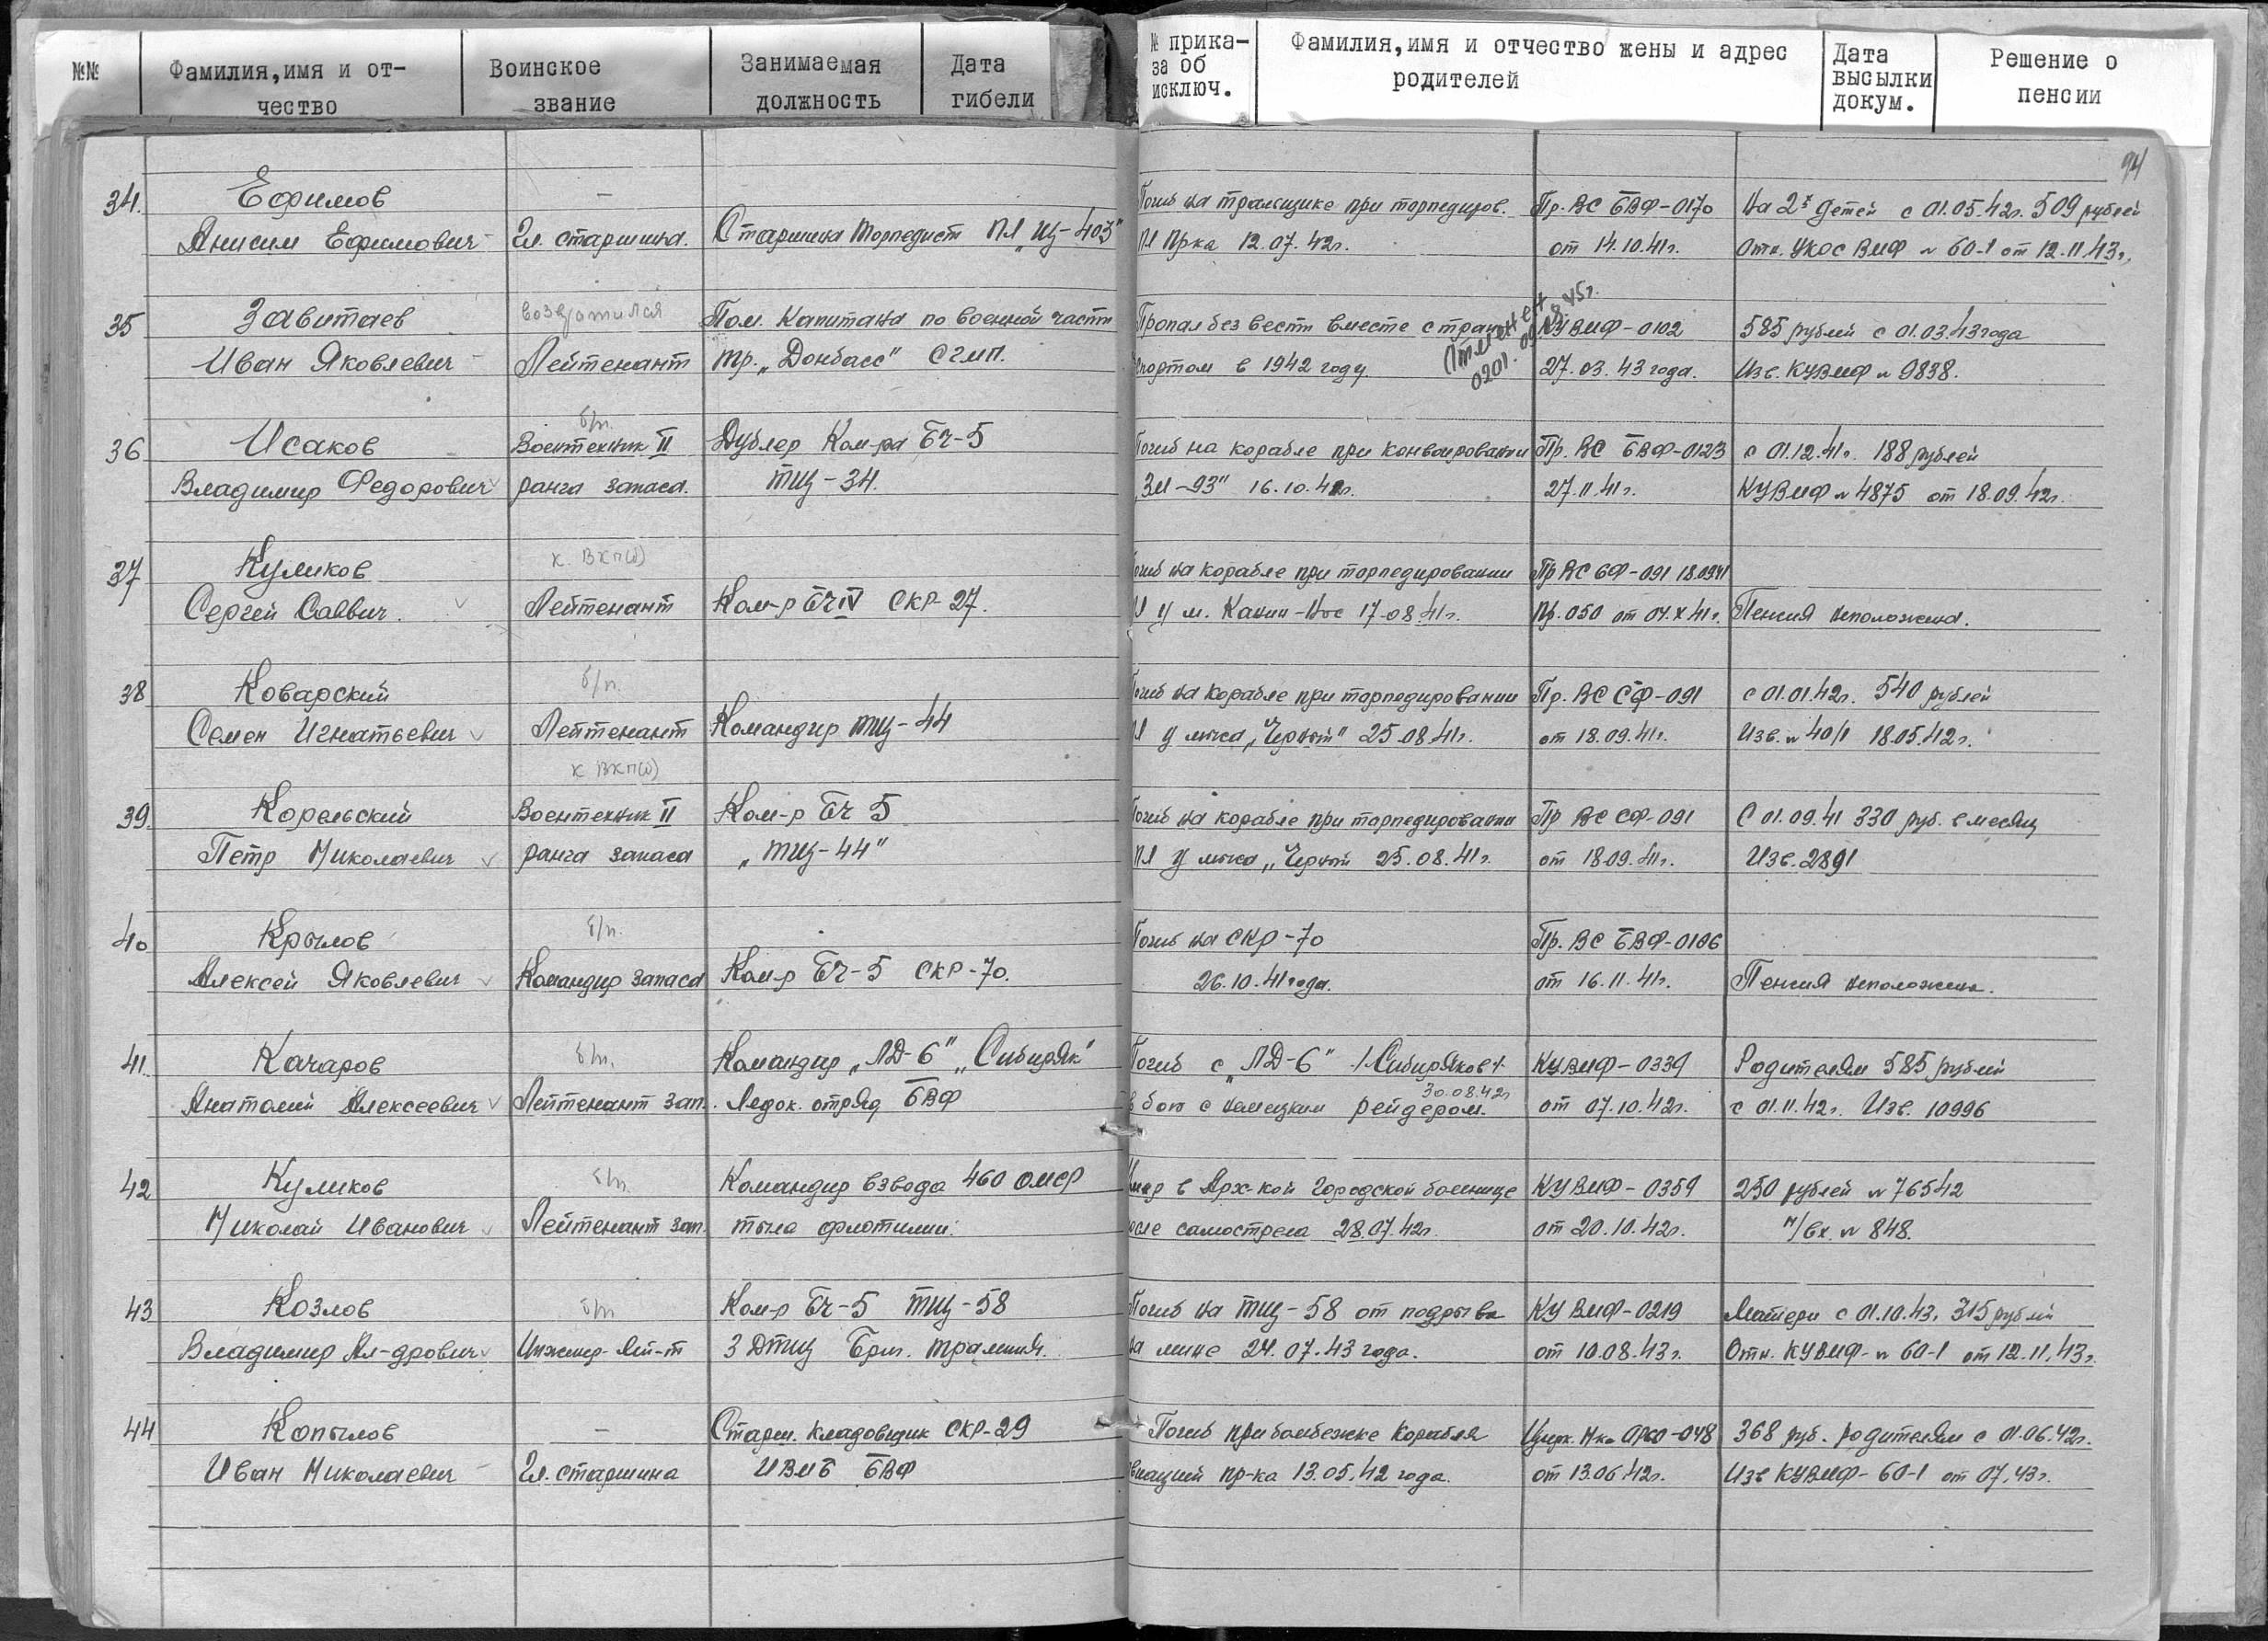 №№
Фамилия, имя и от-
чество
Воинское
звание
Занимаемая
должность
Дата
гибели
№ прика-
за об
исключ.
Фамилия, имя и отчество жены и адрес
родителей
Дата
высылки
докум.
Решение о
пенсии
94
34. Ефимов — Погиб на тральщике при торпедиров. Пр. ВС БВФ-0170 На 2х детей с 01.05.42г. 509 рублей
Анисим Ефимович Гл. старшина. Старшина торпедист ПЛ „Щ-403" ПЛ пр-ка 12.07.42г. от 14.10.41г. Отн. УКОС ВМФ № 60-1 от 12.11.43г.
35 Завитаев возвратился Пом. Капитана по военной части Пропал без вести вместе с тран- КУВМФ-0102 585 рублей с 01.03.43 года
Иван Яковлевич Лейтенант тр. „Донбасс" СГМП. спортом в 1942 году. 27.03.43 года. Изв. КУВМФ № 9838.
Отменен
0201. 09.08.45г.
б/п.
36 Исаков Воентехник II Дублер Ком-ра БЧ-5 Погиб на корабле при конвоировании Пр. ВС БВФ-0123 с 01.12.41г. 188 рублей
Владимир Федорович ранга запаса. ТЩ-34. „ЗМ-93" 16.10.41г. 27.11.41г. КУВМФ № 4875 от 18.09.42г.
к ВКП(б)
37 Куликов Погиб на корабле при торпедировании Пр ВС СФ-091 18.09.41
Сергей Саввич. Лейтенант Ком-р БЧ IV СКР-27. ПЛ у м. Канин-Нос 17.08.41г. Пр. 050 от 04.X 41г. Пенсия неположена.
38 Коварский б/п. Погиб на корабле при торпедировании Пр. ВС СФ-091 с 01.01.42г. 540 рублей
Семен Игнатьевич Лейтенант Командир ТЩ-44 ПЛ у мыса „Черный" 25.08.41г. от 18.09.41г. Изв. № 40/1 18.05.42г.
к ВКП(б)
39. Корельский Воентехник II Ком-р БЧ 5 Погиб на корабле при торпедировании Пр ВС СФ-091 С 01.09.41 330 руб. в месяц
Петр Николаевич ранга запаса „ТЩ-44" ПЛ у мыса „Черный 25.08.41г. от 18.09.41г. Изв. 2891
40 Крылов б/п. Погиб на СКР-70 Пр. ВС БВФ-0106
Алексей Яковлевич Командир запаса Ком-р БЧ-5 СКР-70. 26.10.41 года. от 16.11.41г. Пенсия неположена.
41. Качаров б/п. Командир „ЛД-6" „Сибиряк" Погиб с „ЛД-6" /Сибиряков/ КУВМФ-0339 Родителям 585 рублей
30.08.42г
Анатолий Алексеевич Лейтенант зап. Ледок. отряд БВФ в бою с немецким рейдером. от 07.10.42г. с 01.11.42г. Изв. 10996
42 Куликов б/п. Командир взвода 460 ОМСР Умер в Арх-кой городской больнице КУВМФ-0359 250 рублей № 76542
Николай Иванович Лейтенант зап. тыла флотилии. после самострела 28.07.42г. от 20.10.42г. н/вх. № 848.
43 Козлов б/п Ком-р БЧ-5 ТЩ-58 Погиб на ТЩ-58 от подрыва КУВМФ-0219 Матери с 01.10.43. 315 рублей
Владимир Ал-дрович Инженер-лей-т 3 ДТЩ Бриг. траления. на мине 24.07.43 года. от 10.08.43г. Отн. КУВМФ-№ 60-1 от 12.11.43г.
44 Копылов — Старш. кладовщик СКР-29 Погиб при бомбежке корабля 368 руб. родителям с 01.06.42г.
Иван Николаевич Гл. старшина ИВМБ БВФ авиацией пр-ка 13.05.42 года. от 13.06.42г. Изв КУВМФ-60-1 от 07.43г.